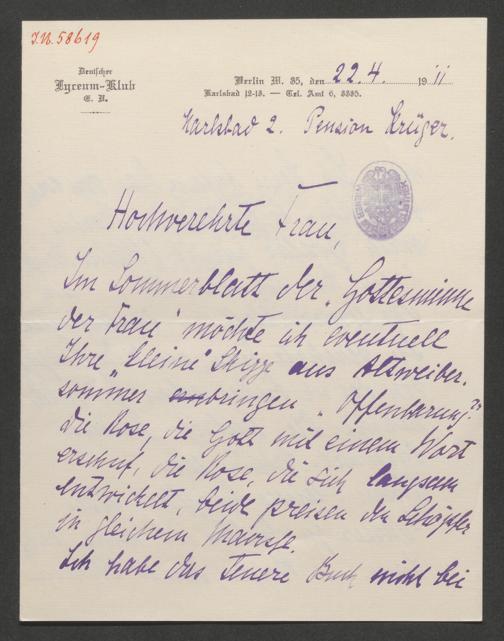 I.N. 58619
Deutscher
Lyceum-Klub
E. V.
Berlin W. 35, den 22.4. 1911
Karlsbad 12-13. — Tel. Amt 6, 3335.
Karlsbad 2. Pension Krüger.
Hochverehrte Frau,
Im Sommerblatt der „Gottesminne
der Frau" möchte ich eventuell
Ihre „kleine" Skizze aus Altweiber.
sommer bringen „Offenbarung?"
Die Rose, die Gott mit einem Wort
erschuf, die Rose, die sich langsam
entwickelt, beide preisen den Schöpfer
in gleichem Maasse.
Ich habe das teuere Buch nicht bei